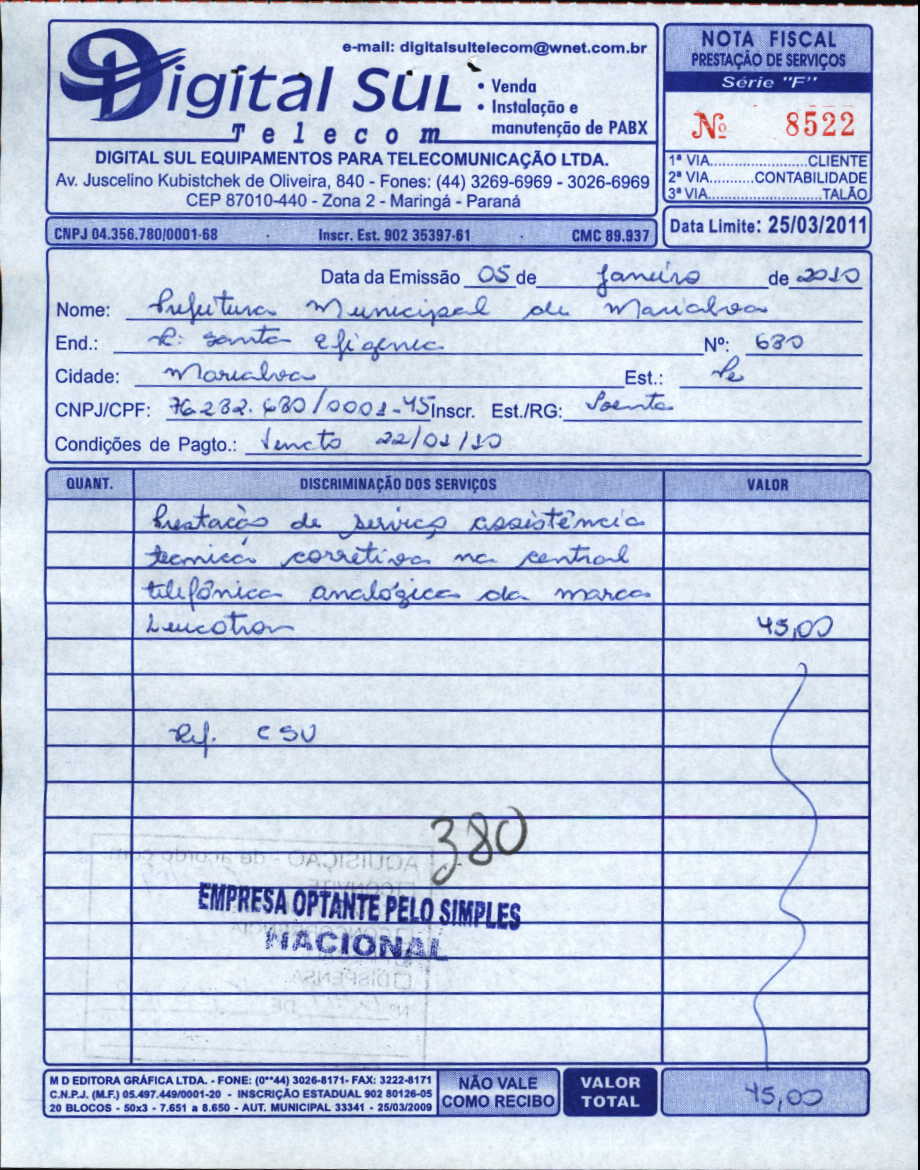 e-mail: digitalsultelecom@wnet.com.br
Digital Sul
Telecom
• Venda
• Instalação e
manutenção de PABX
DIGITAL SUL EQUIPAMENTOS PARA TELECOMUNICAÇÃO LTDA.
Av. Juscelino Kubistchek de Oliveira, 840 - Fones: (44) 3269-6969 - 3026-6969
CEP 87010-440 - Zona 2 - Maringá - Paraná
NOTA FISCAL
PRESTAÇÃO DE SERVIÇOS
Série "F"
Nº 8522
1ª VIA......................CLIENTE
2ª VIA...........CONTABILIDADE
3ª VIA.........................TALÃO
CNPJ 04.356.780/0001-68 Inscr. Est. 902 35397-61 CMC 89.937
Data Limite: 25/03/2011
Data da Emissão 05 de Janeiro de 2010
Nome: Prefeitura Municipal de Marialva
End.: R: Santa Efigenia Nº: 680
Cidade: Marialva Est.: Pr
CNPJ/CPF: 76.282.680/0001-45 Inscr. Est./RG: Isenta
Condições de Pagto.: Vencto 22/01/10
QUANT. DISCRIMINAÇÃO DOS SERVIÇOS VALOR
Prestação de serviço assistência
tecnica corretiva na central
telefônica analógica da marca
Leucotron 45,00
Ref. CSU
380
AQUISIÇÃO - de acordo com:
EMPRESA OPTANTE PELO SIMPLES
NACIONAL
DISPENSA
M D EDITORA GRÁFICA LTDA. - FONE: (0**44) 3026-8171- FAX: 3222-8171
C.N.P.J. (M.F.) 05.497.449/0001-20 - INSCRIÇÃO ESTADUAL 902 80126-05
20 BLOCOS - 50x3 - 7.651 a 8.650 - AUT. MUNICIPAL 33341 - 25/03/2009
NÃO VALE
COMO RECIBO
VALOR
TOTAL
45,00